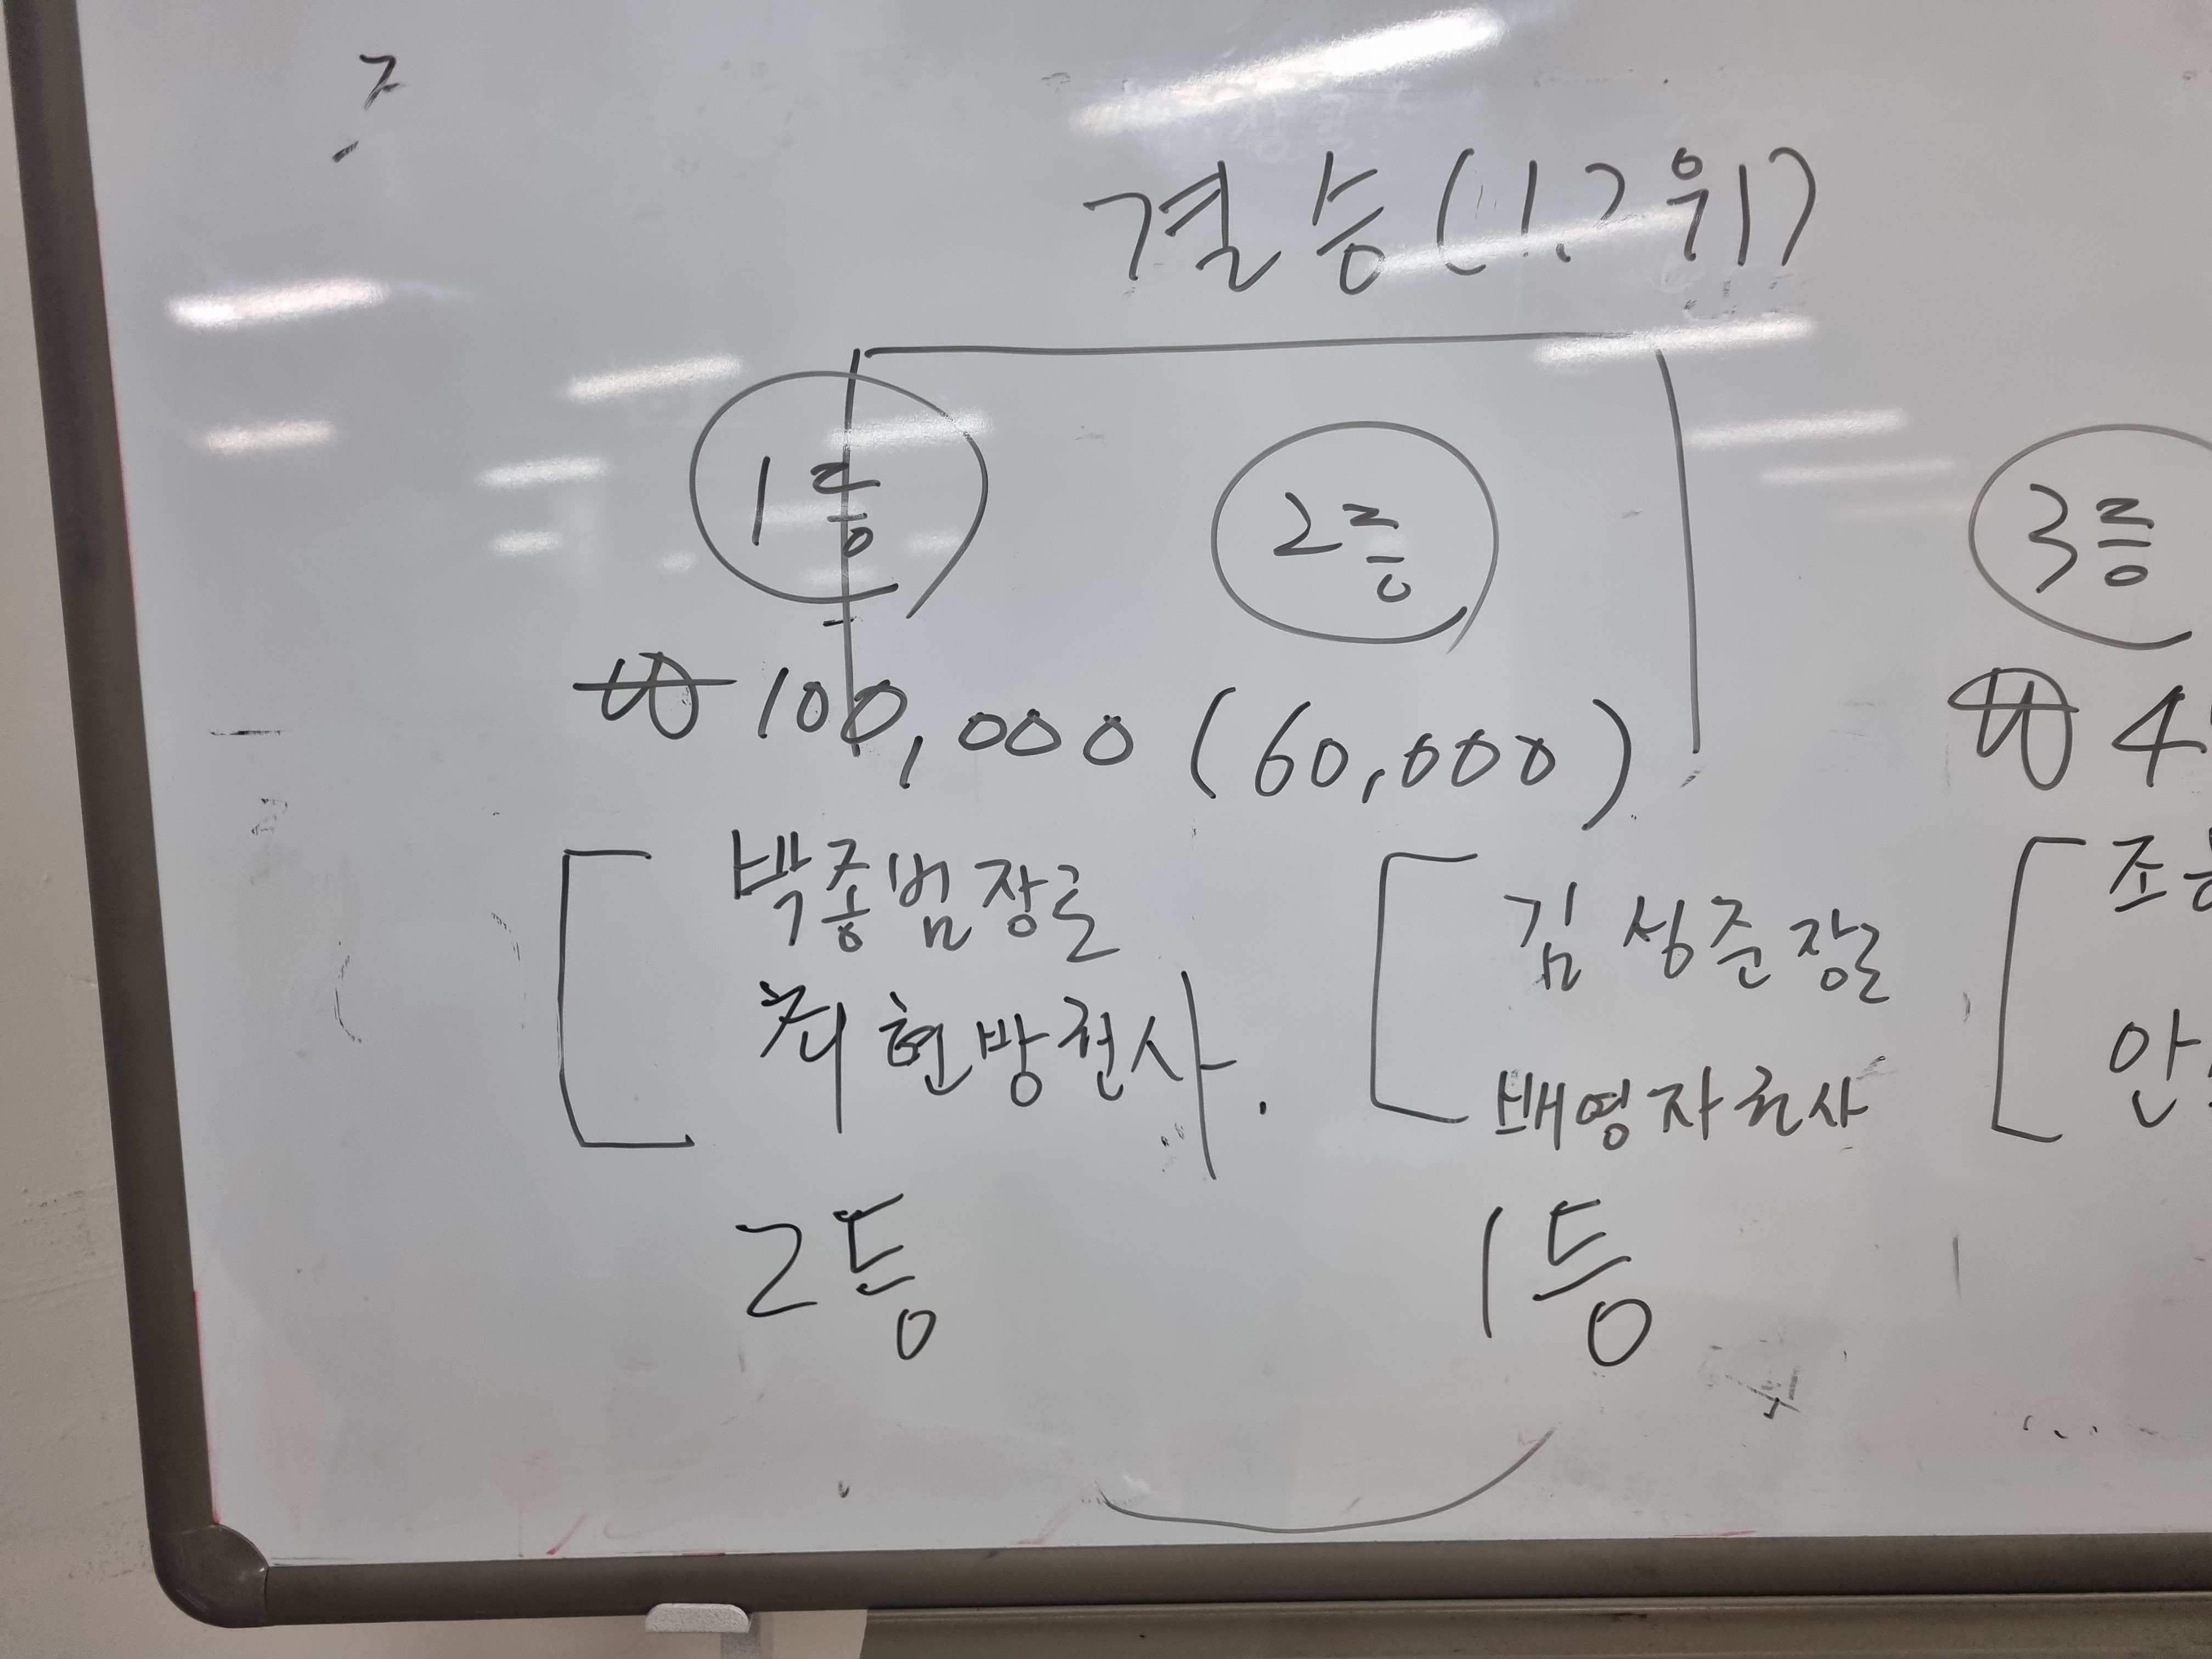 결승(1.2위)
1등 2등 3등
₩100,000 (60,000) ₩4
박종범장로 김성준장로 조
최현방권사. 배영자권사 안
2등 1등